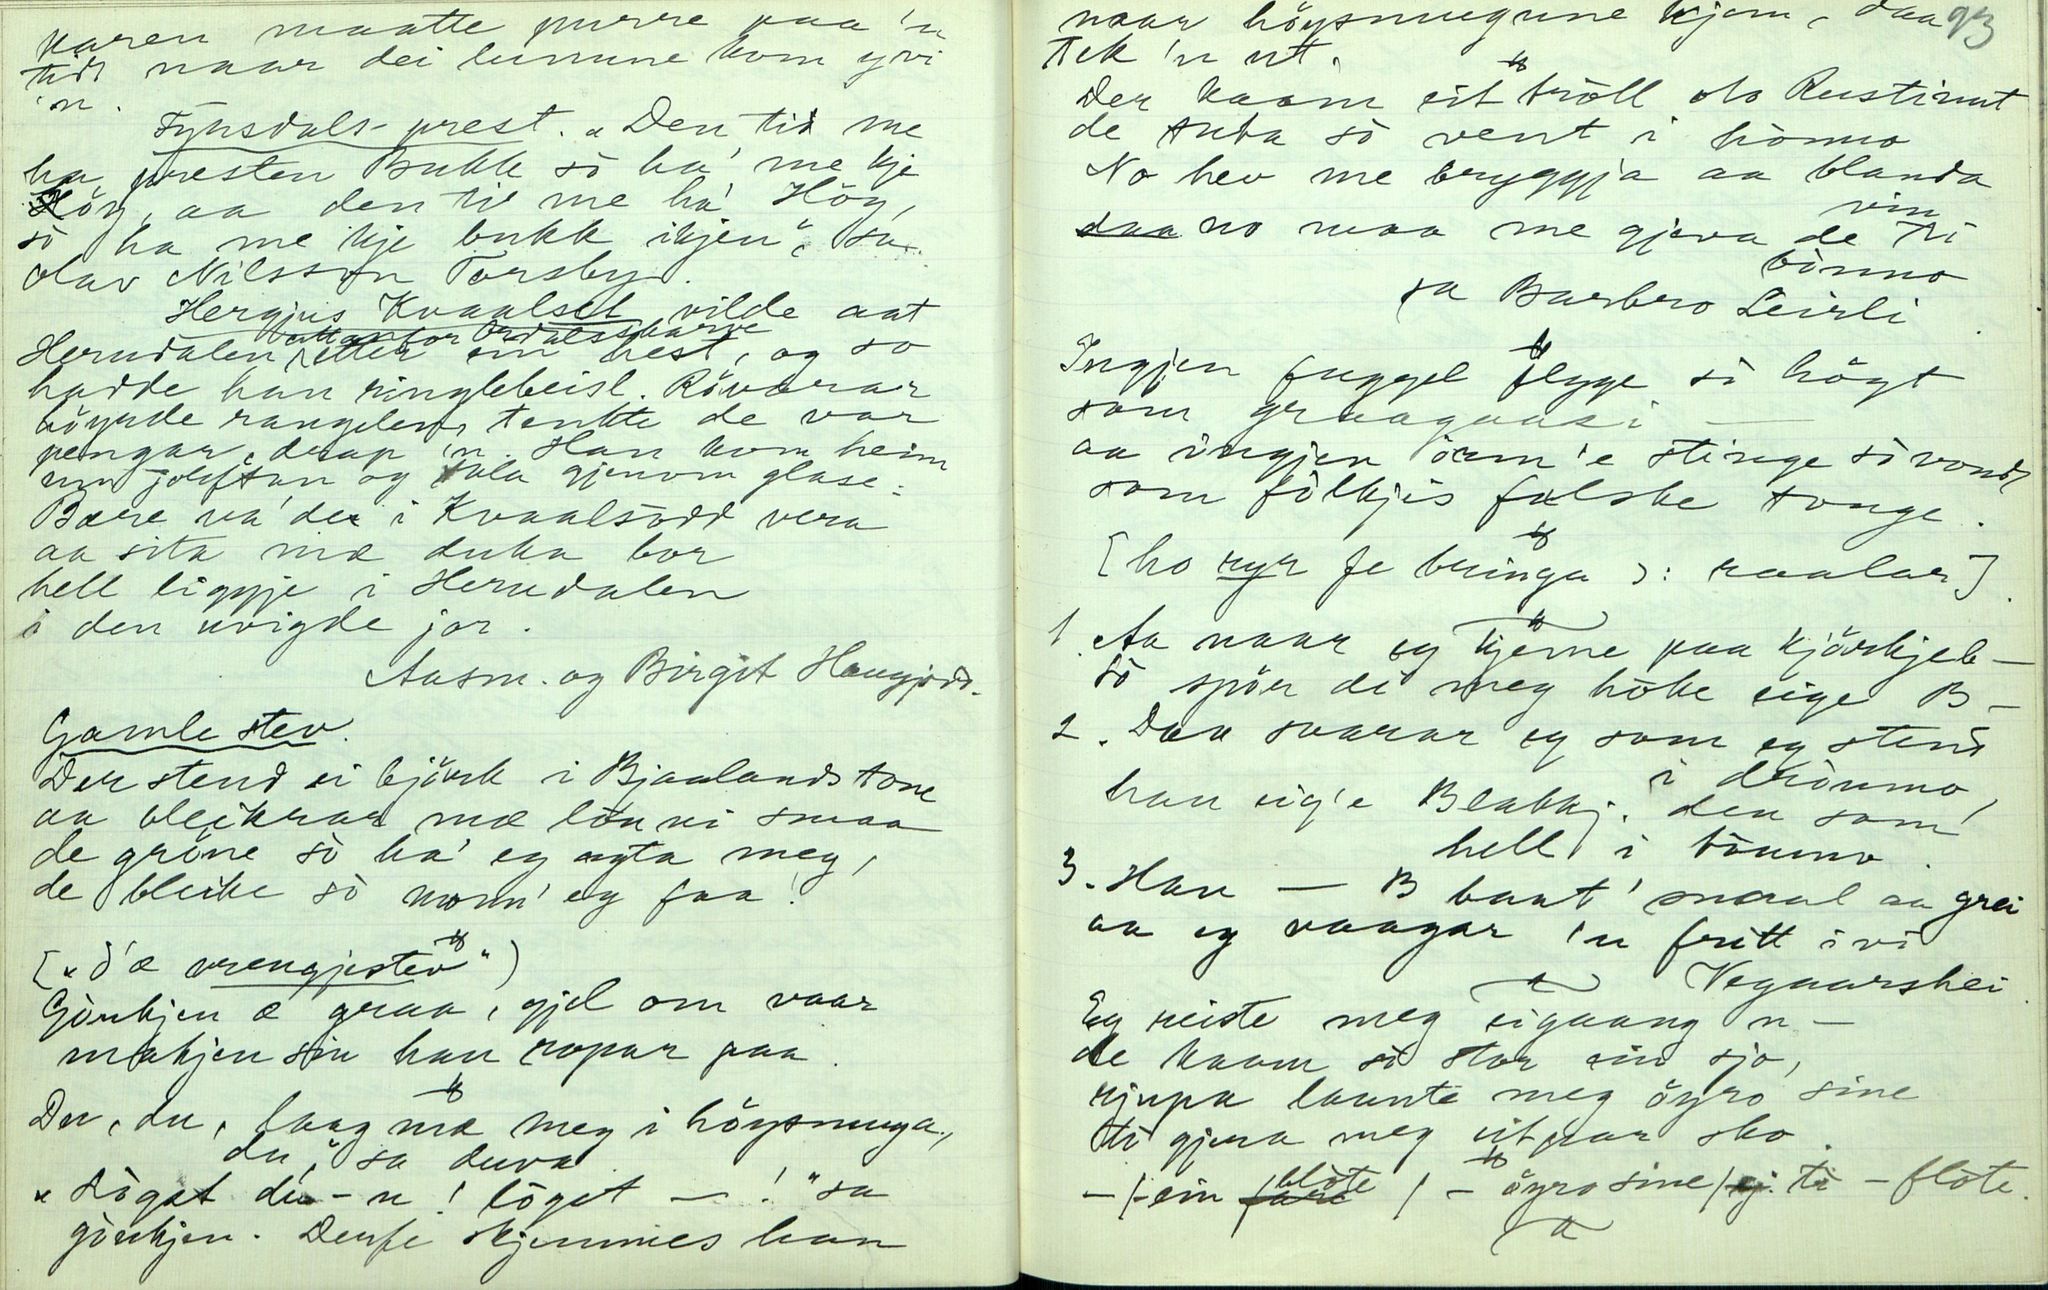 karen maatte purre paa 'n
tidt naar dei lunnune kom yvi
'n.
Fyrisdals-prest. „Den tid me
ha presten Bukk so ha' me kje
Höy, aa den ti me ha' Höy,
so ha me kje bukk ikjen", sa
Olav Nilsson Torsby.
Hergjus Kvaalset vilde aat
Herudalen etter ein hest, og so
hadde han ringlebeisl. Rövarar
höyrde rangelen, tenkte de var
pengar, drap 'n. Han kom heim
um joleftan og tala gjenom glase:
Bære va' de i Kvaalsodd vera
aa sita mæ duka bor
hell liggje i Herudalen
i den uvigde jor.
Aasm. og Birgit Haugjord.
Gamle stev.
Der stend ei björk i Bjaalandstone
aa bleikrar mæ lauvi smaa
de gröne so ha' eg agta meg,
de bleike so monn' eg faa!
[„d'æ vrengjestev")
Gaukjen æ graa, gjel om vaar
makjen sin han ropar paa.
Du, du, laag mæ meg i höysmuga,
du," sa duva
„Löget du - u! löget — !" sa
gaukjen. Derfe skjemmes han
naar höysmugune kjem, daa
93
tek 'n ut.
Der kaam eit tröll o Rustimut
de tuta so vent i honno
No hev me bryggja aa blanda
vin
daa no maa me gjeva de ti
bonno
sa Barbro Leirli
Ingjen fuggel flyge so högt
som graagaasi —
aa ingjen orm 'e stinge so vondt
som folkjis falske tonge.
[ho ryr fe bringa ɔ: raalar]
1. Aa naar eg kjeme paa kjörkjeb—
so spör di meg hoke eige B—
2. Daa svarar eg som eg stend
i draumo,
han eig'e Blakkj. den som
hell i taumo.
3. Han — B baat' smaal aa grei
aa eg vaagar 'n fritt ivi
Vegaarshei.
Eg reiste meg eigaang u—
de kaam so stor ein sjo,
rjupa laante meg ögro sine
ti gjera meg eit par sko.
— /-ein flote / — ögro sine / ti — flote.